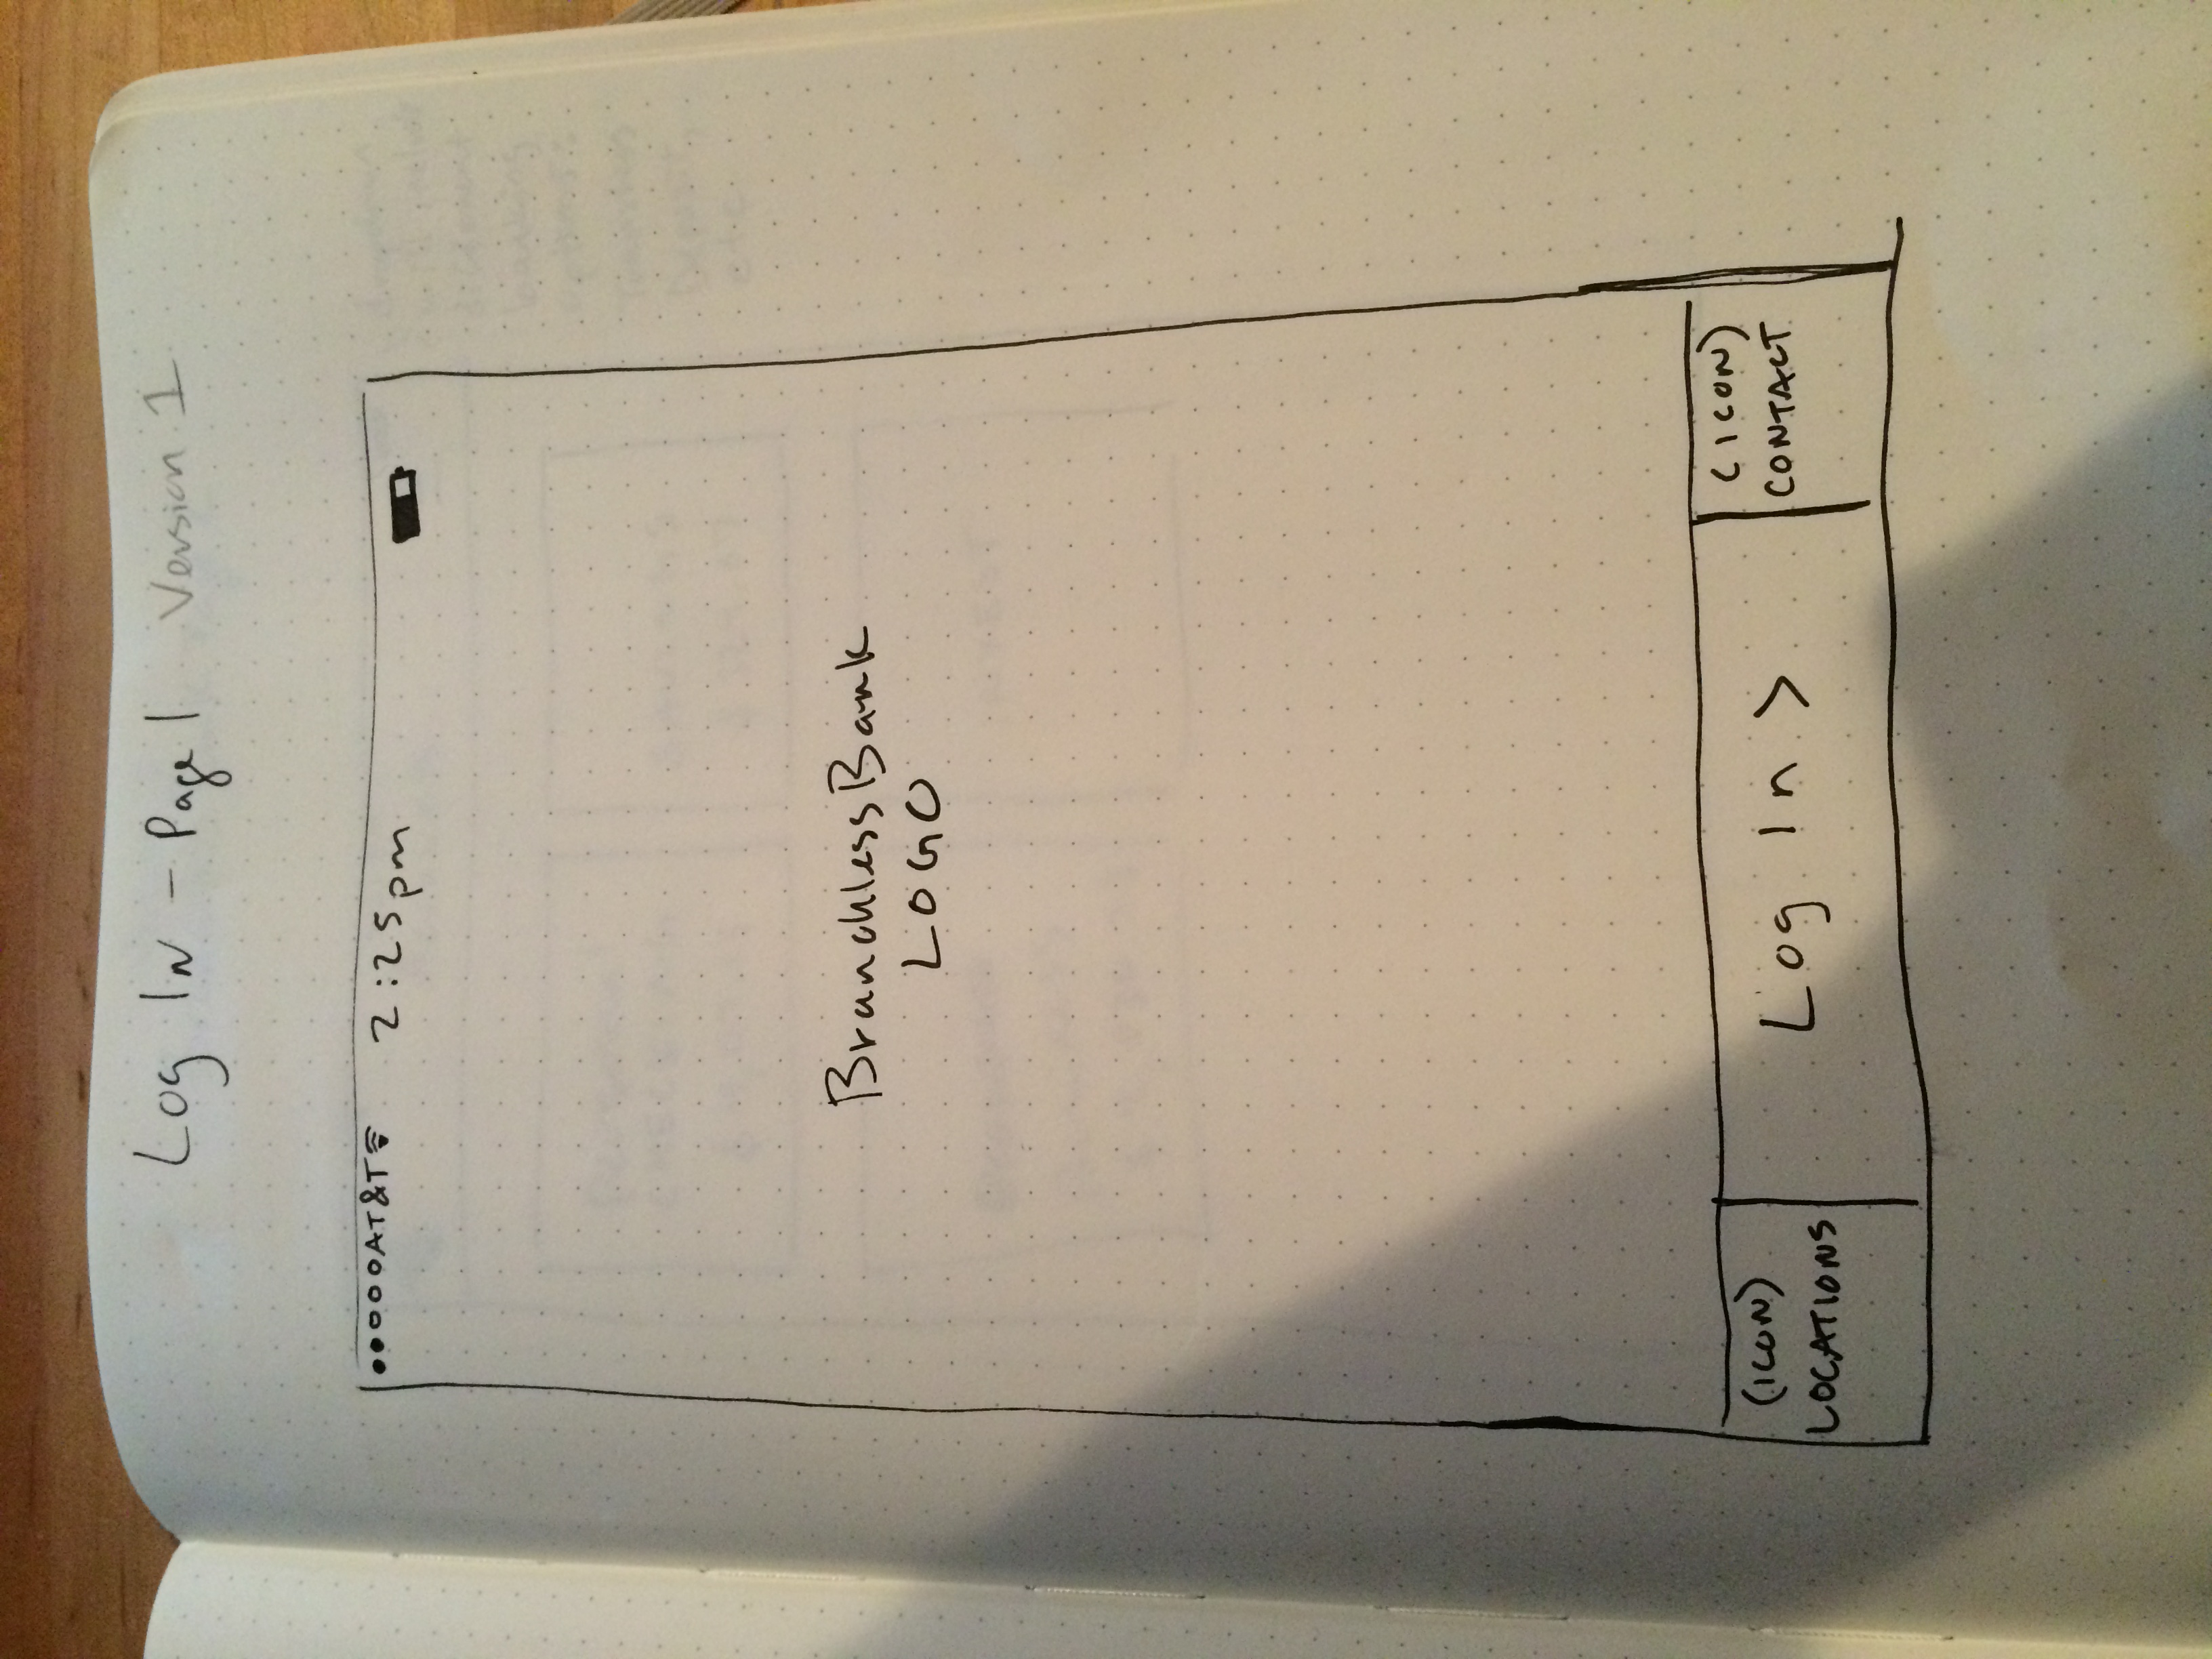 Log In - Page 1 Version 1
AT&T 2:25pm
BranchlessBank
LOGO
(ICON)
LOCATIONS
Log In >
(ICON)
CONTACT